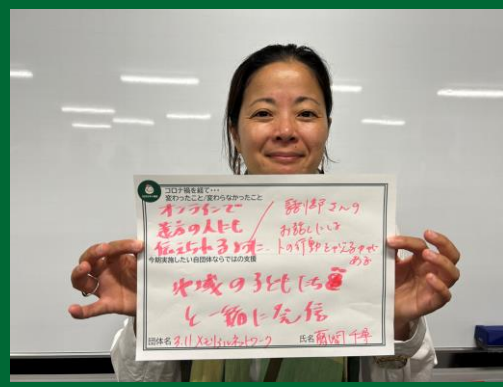 コロナ禍を経て・・・
変わったこと/変わらなかったこと
オンラインで
遠方の人にも
伝えられるように。
/
語り部さんの
お話には
人の行動を変える力が
ある
今期実施したい自団体ならではの支援
地域の子どもたち
と一緒に発信
団体名 3.11メモリアルネットワーク
氏名